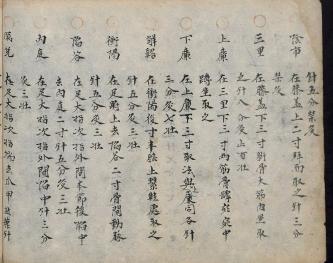 針五分禁灸
陰市 在膝盖上二寸拜而取之針三分
禁灸
三里 在膝盖下三寸䯒骨大筋內宛取
之針八分灸止百壯
上廉 在三里下三寸兩筋骨罅宛宛中
蹲坐取之
下廉 在上廉下三寸取法與上廉同各針
三分灸七壯
解谿 在衝陽後寸半腕上繫鞋處取之
針五分灸三壯
衝陽 在足跗上去陷谷二寸骨間動脉
針五分灸三壯
陷谷 在足大指次指外間本節後陷中
去內庭二寸針五分灸三壯
內庭 在足大指次指外間陷中針三分
灸三壯
厲兌 在足大指次指端去爪甲